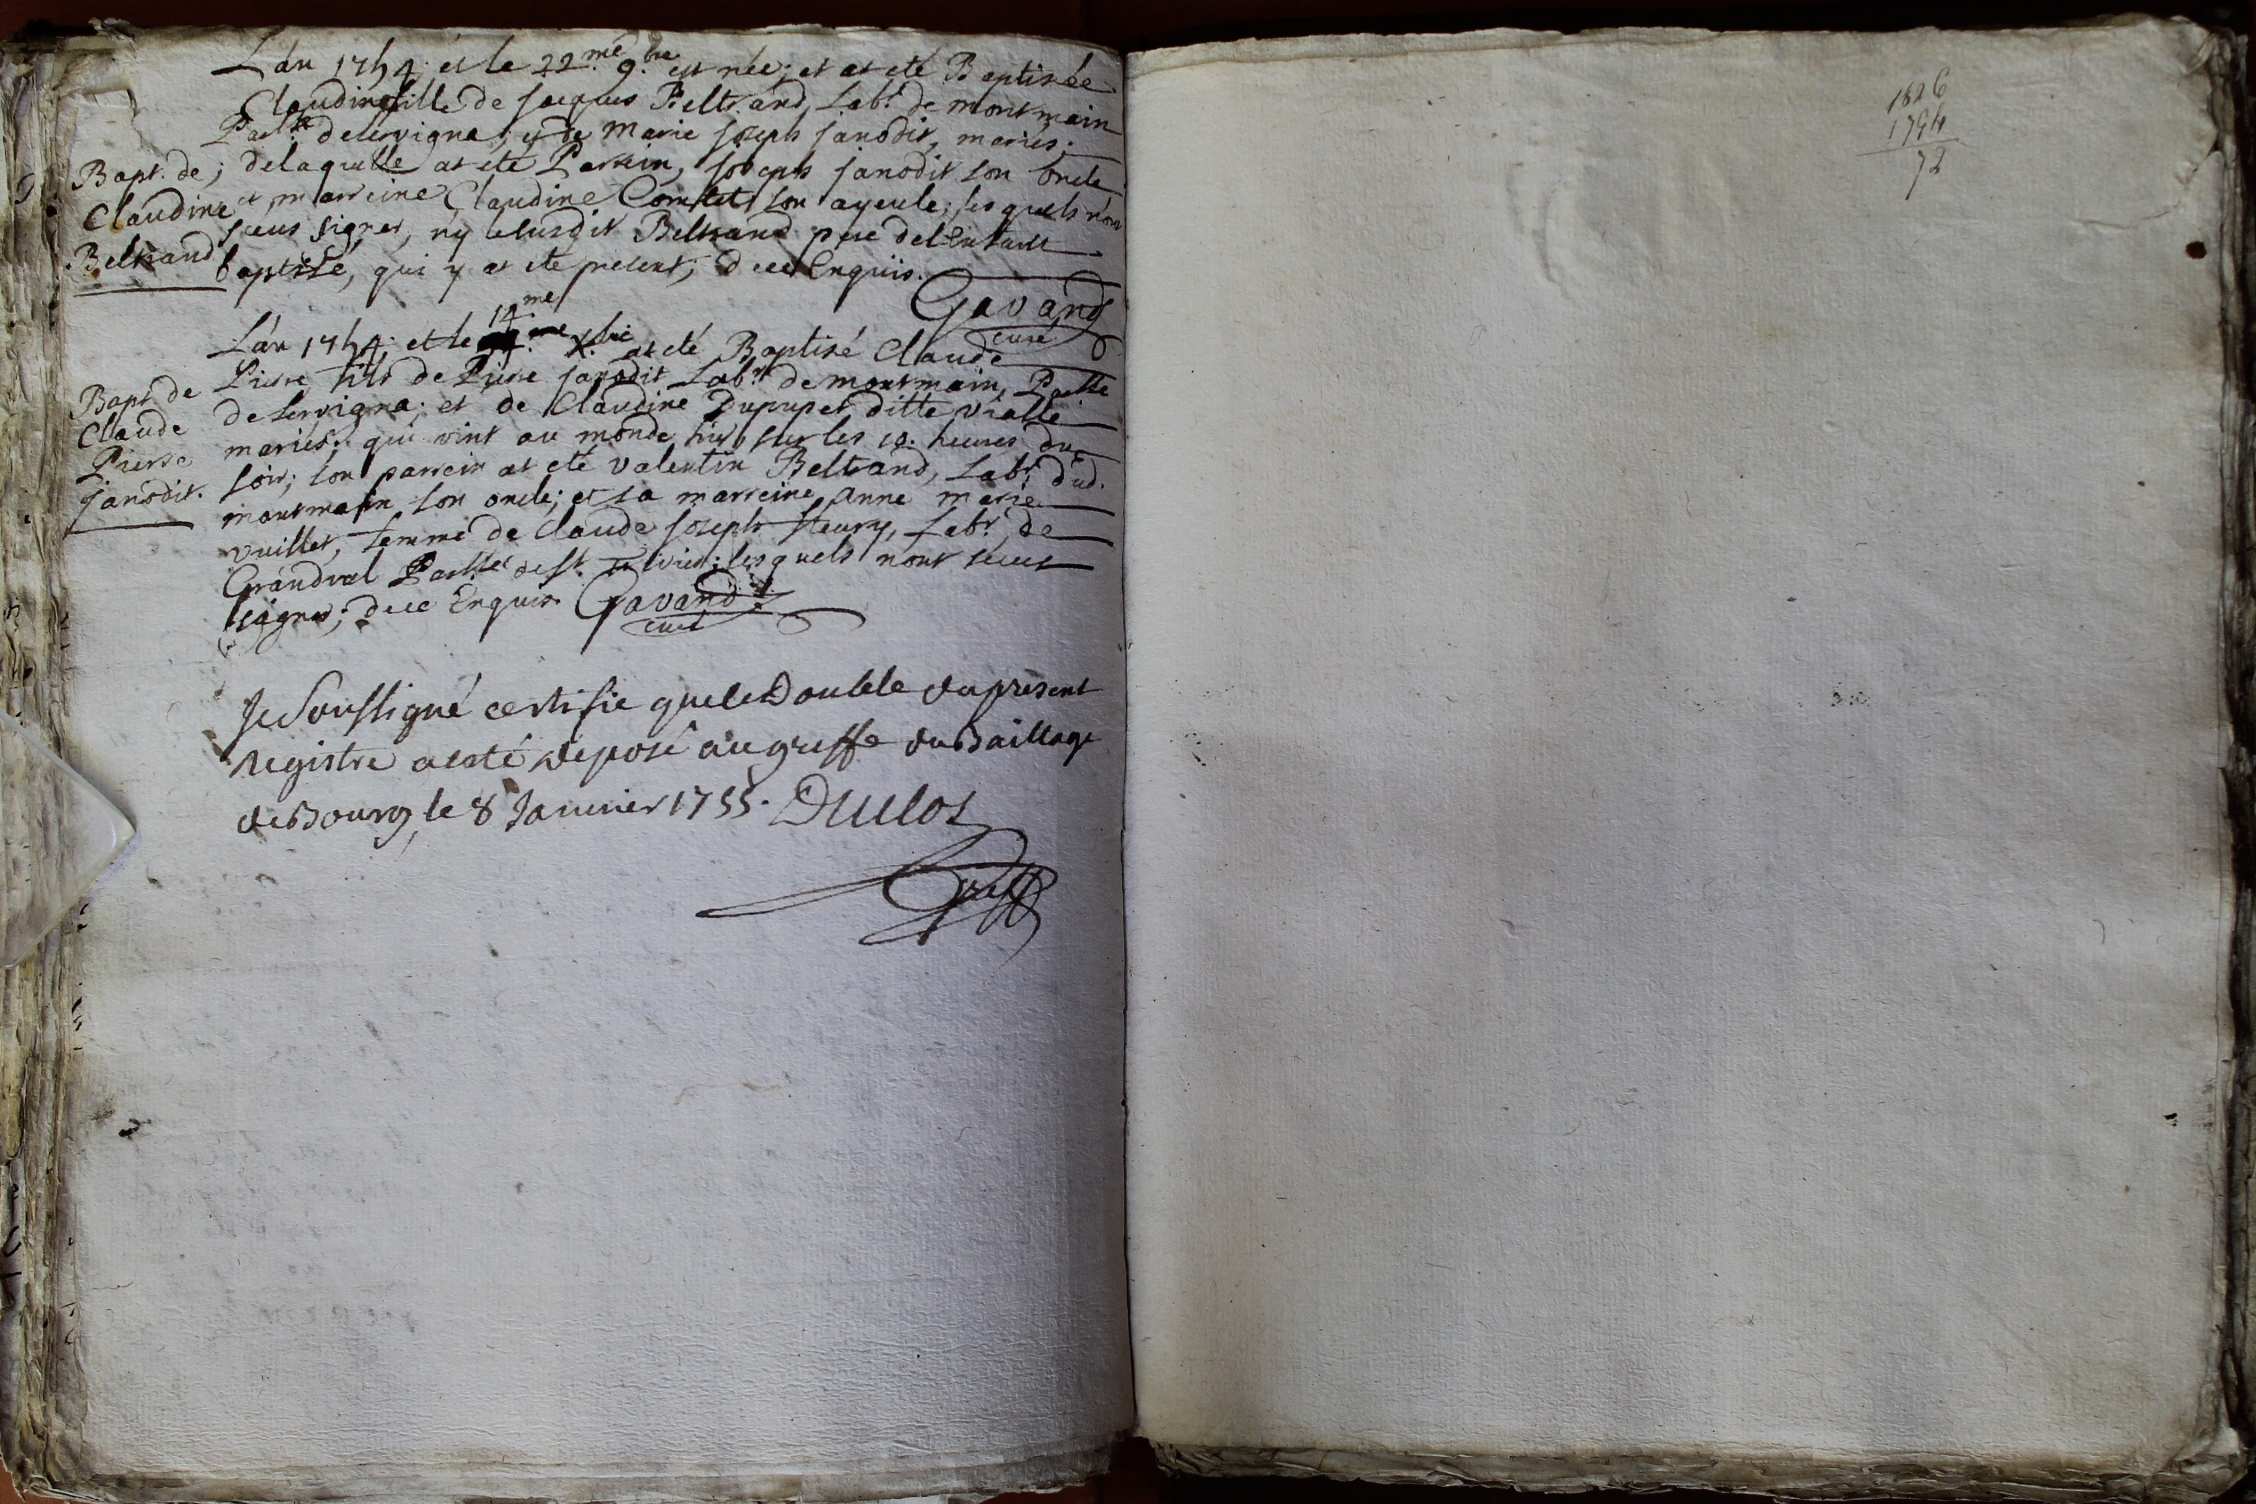 L'an 1754. et le 22.me 9.bre est née; et at eté Baptisée
Claudine fille de jacques Beltrand, Lab.r de montmain
Paelle de servigna; et de Marie joseph janodit, mariés;
Bapt. de
Claudine
Beltrand
de laquelle at eté Parrein, joseph janodit son oncle
et marreine Claudine Comtet son ayeule; lesquels n'ont
sceus signer, ny ledusdit Beltrand pere de l'Enfant
baptisé, qui y at eté present; de ce Enquis.
Gavand
curé
L'an 1754. et le 14.me X.bre at eté Baptisé Claude
Bapt. de
Claude
Pierre
janodit.
Pierre fils de Pierre janodit Lab.r de montmain, Paelle
de servigna; et de Claudine Dupupet ditte vialle
mariés; qui vint au monde hier sur les 10. heures du
soir; son parrein at eté valentin Beltrand, Lab.r dud.
montmain son oncle; et sa marreine anne marie
vuillet, femme de Claude joseph fleury, Lab.r de
Grandval Paelle de st. trivier; lesquels nont sceus
signer; de ce Enquis. Gavand
curé
Je Soussigné certifie que le Double du present
Registre a esté deposé au greffe du Baillage
de Bourg, le 8 Janvier 1755. Duclos
Greff
1826
1754
72